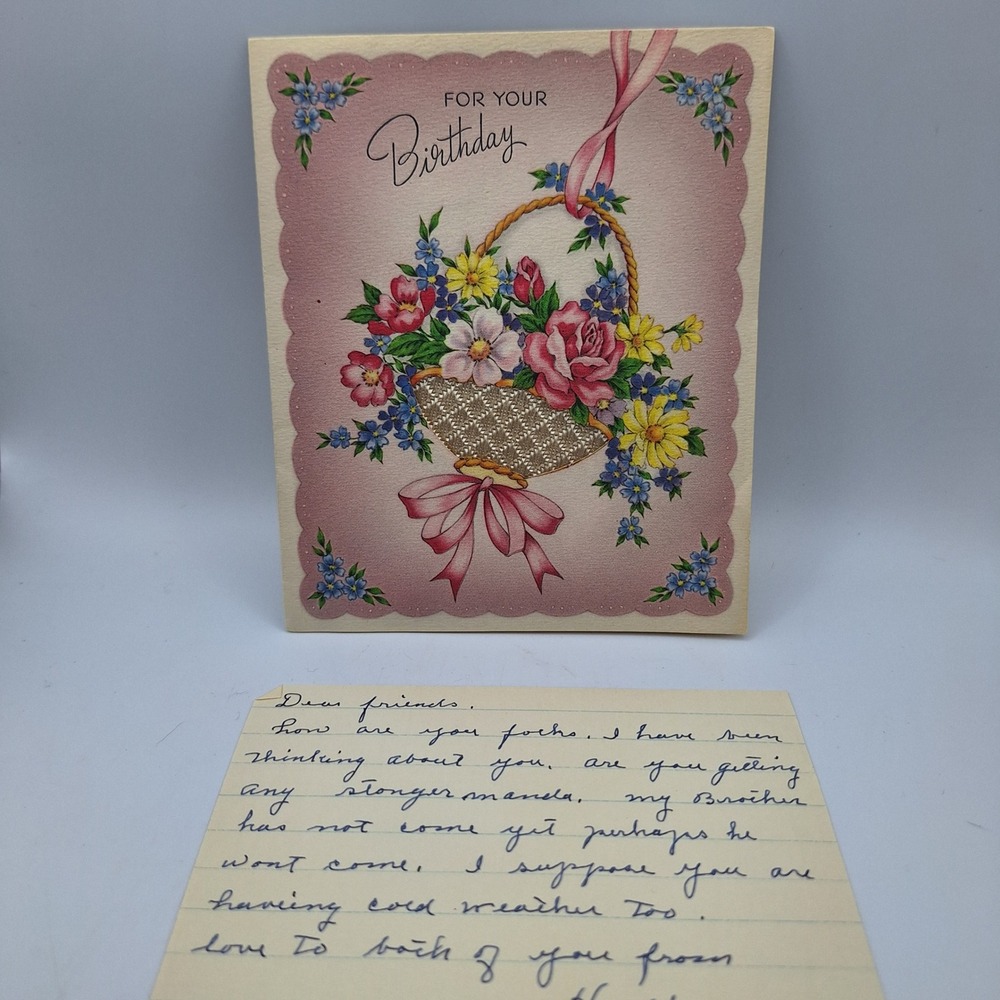 FOR YOUR
Birthday
Dear friends.
how are you folks. I have been
thinking about you. are you getting
any stonger manda. my Brother
has not come yet perhaps he
wont come. I suppose you are
haveing cold weather too.
love to both of you from